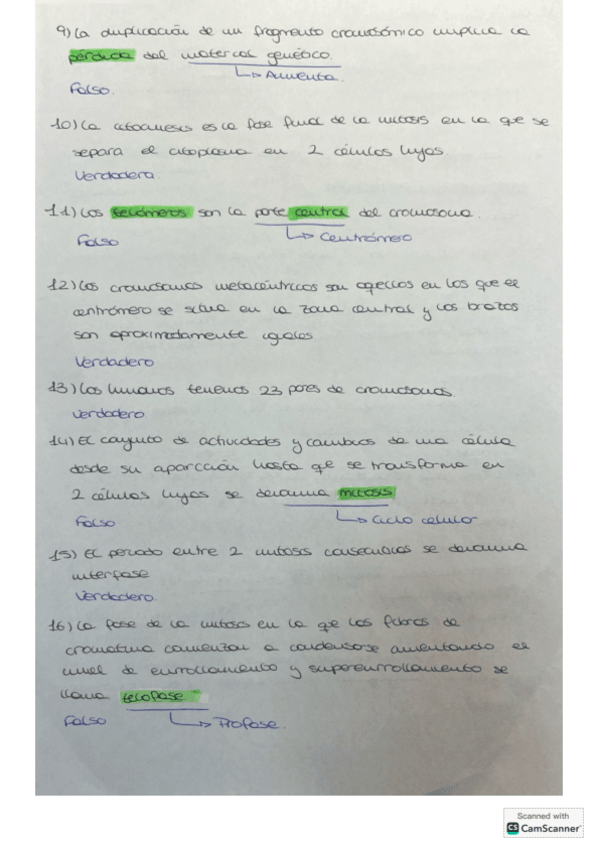 9) La duplicación de un fragmento cromosómico implica la
pérdida del material genético.
↳ Aumenta.
Falso.
10) La citocinesis es la fase final de la mitosis en la que se
separa el citoplasma en 2 células hijas.
Verdadera.
11) Los telómeros son la parte central del cromosoma.
Falso
↳ Centrómero
12) Los cromosomas metacéntricos son aquellos en los que el
centrómero se sitúa en la zona central y los brazos
son aproximadamente iguales
Verdadero
13) Los humanos tenemos 23 pares de cromosomas.
Verdadero
14) El conjunto de actividades y cambios de una célula
desde su aparición hasta que se transforma en
2 células hijas se denomina mitosis
Falso
↳ Ciclo celular
15) El periodo entre 2 mitosis consecutivas se denomina
interfase
Verdadero.
16) La fase de la mitosis en la que las fibras de
cromatina comienzan a condensarse aumentando el
nivel de enrollamiento y superenrollamiento se
llama telofase
Falso
↳ Profase.
Scanned with
CS CamScanner